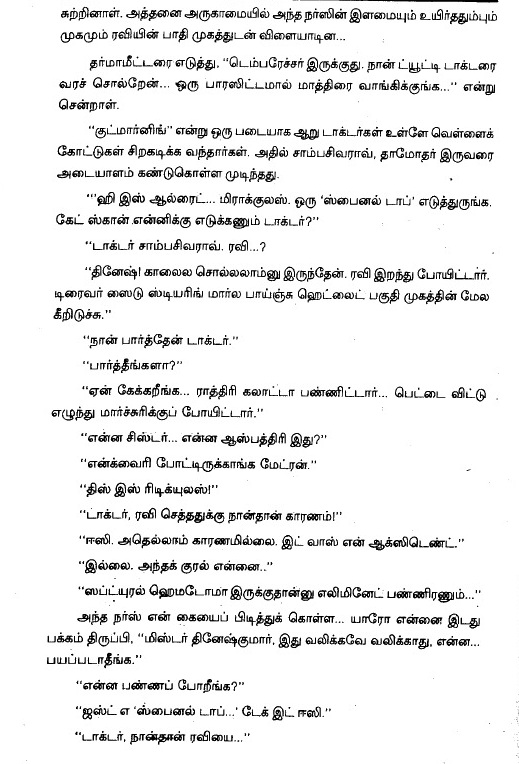 சுற்றினாள். அத்தனை அருகாமையில் அந்த நர்ஸின் இளமையும் உயிர்ததும்பும்
முகமும் ரவியின் பாதி முகத்துடன் விளையாடின...
தர்மாமீட்டரை எடுத்து, “டெம்பரேச்சர் இருக்குது. நான் ட்யூட்டி டாக்டரை
வரச் சொல்றேன்... ஒரு பாரஸிட்டமால் மாத்திரை வாங்கிக்குங்க...” என்று
சென்றாள்.
“குட்மார்னிங்” என்று ஒரு படையாக ஆறு டாக்டர்கள் உள்ளே வெள்ளைக்
கோட்டுகள் சிறகடிக்க வந்தார்கள். அதில் சாம்பசிவராவ், தாமோதர் இருவரை
அடையாளம் கண்டுகொள்ள முடிந்தது.
“ஹி இஸ் ஆல்ரைட்... மிராக்குலஸ். ஒரு ‘ஸ்பைனல் டாப்’ எடுத்துருங்க.
கேட் ஸ்கான் என்னிக்கு எடுக்கணும் டாக்டர்?”
“டாக்டர் சாம்பசிவராவ். ரவி...?
“தினேஷ்! காலைல சொல்லலாம்னு இருந்தேன். ரவி இறந்து போயிட்டார்.
டிரைவர் ஸைடு ஸ்டியரிங் மார்ல பாய்ஞ்சு ஹெட்லைட் பகுதி முகத்தின் மேல
கீறிடுச்சு.”
“நான் பார்த்தேன் டாக்டர்.”
“பார்த்தீங்களா?”
“ஏன் கேக்கறீங்க... ராத்திரி கலாட்டா பண்ணிட்டார்... பெட்டை விட்டு
எழுந்து மார்ச்சுரிக்குப் போயிட்டார்.”
“என்ன சிஸ்டர்... என்ன ஆஸ்பத்திரி இது?”
“என்க்வைரி போட்டிருக்காங்க மேட்ரன்.”
“திஸ் இஸ் ரிடிக்யுலஸ்!”
“டாக்டர், ரவி செத்ததுக்கு நான்தான் காரணம்!”
“ஈஸி. அதெல்லாம் காரணமில்லை. இட் வாஸ் என் ஆக்ஸிடெண்ட்.”
“இல்லை. அந்தக் குரல் என்னை..”
“ஸப்ட்யுரல் ஹெமடோமா இருக்குதான்னு எலிமினேட் பண்ணிரணும்...”
அந்த நர்ஸ் என் கையைப் பிடித்துக் கொள்ள... யாரோ என்னை இடது
பக்கம் திருப்பி, “மிஸ்டர் தினேஷ்குமார், இது வலிக்கவே வலிக்காது, என்ன...
பயப்படாதீங்க.”
“என்ன பண்ணப் போறீங்க?”
“ஜஸ்ட் எ ‘ஸ்பைனல் டாப்...’ டேக் இட் ஈஸி.”
“டாக்டர், நான்தான் ரவியை...”